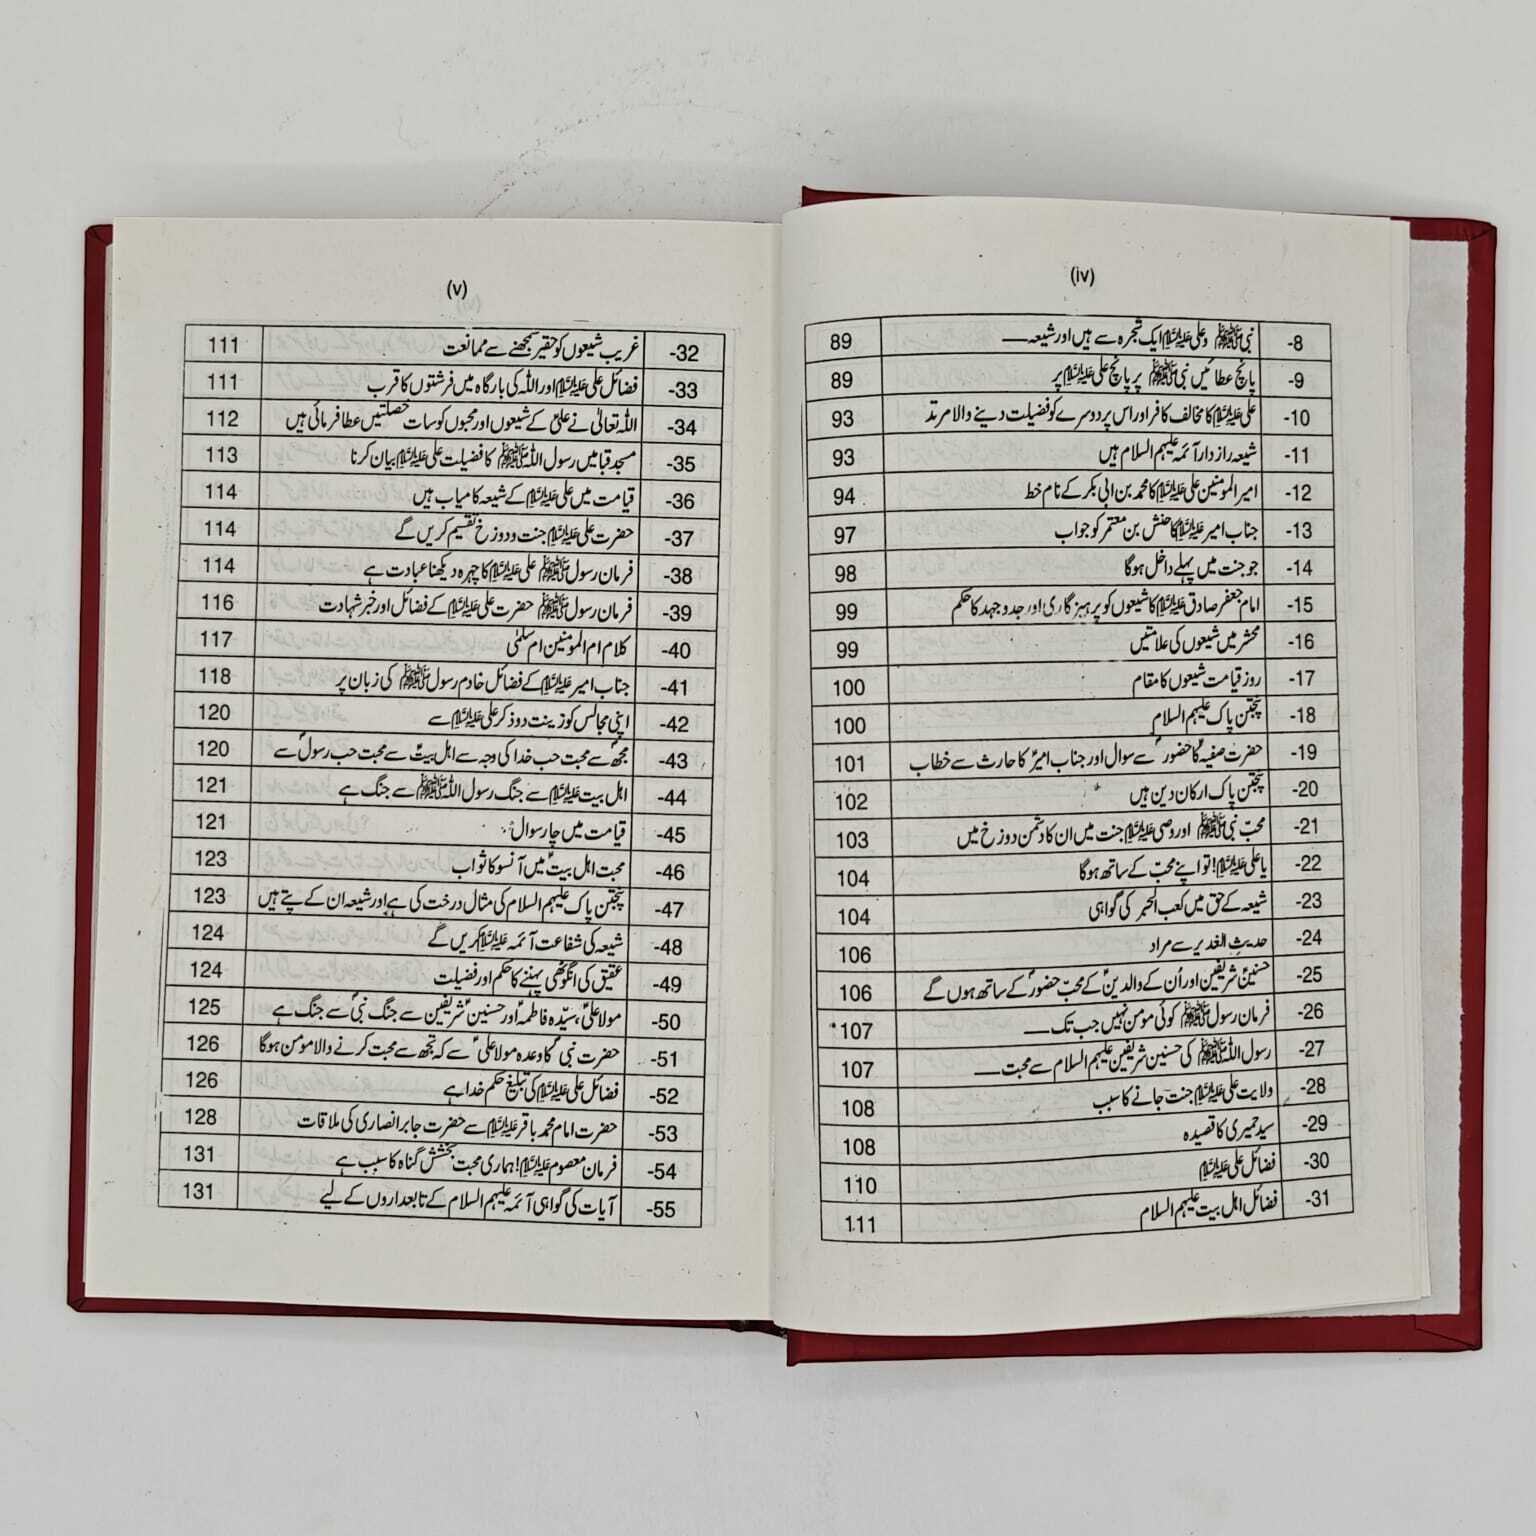 (iv)
-8 نبی ﷺ و علی علیہ السلام ایک شجرہ سے ہیں اور شیعہ ــــ 89
-9 پانچ عطائیں نبی ﷺ پر پانچ علی علیہ السلام پر 89
-10 علی علیہ السلام کا مخالف کافر اور اس پر دوسرے کو فضیلت دینے والا مرتد 93
-11 شیعہ راز دار آئمہ علیہم السلام ہیں 93
-12 امیر المومنین علی علیہ السلام کا محمد بن ابی بکر کے نام خط 94
-13 جناب امیر علیہ السلام کا حنش بن معتمر کو جواب 97
-14 جو جنت میں پہلے داخل ہوگا 98
-15 امام جعفر صادق علیہ السلام کا شیعوں کو پرہیز گاری اور جدوجہد کا حکم 99
-16 محشر میں شیعوں کی علامتیں 99
-17 روز قیامت شیعوں کا مقام 100
-18 پنجتن پاک علیہم السلام 100
-19 حضرت صفیہ کا حضورؐ سے سوال اور جناب امیرؑ کا حارث سے خطاب 101
-20 پنجتن پاک ارکان دین ہیں 102
-21 محبّ نبی ﷺ اور وصی علیہ السلام جنت میں ان کا دشمن دوزخ میں 103
-22 یا علی علیہ السلام! تو اپنے محبّ کے ساتھ ہوگا 104
-23 شیعہ کے حق میں کعب الحبر کی گواہی 104
-24 حدیث الغدیر سے مراد 106
-25 حسنینؑ شریفین اور اُن کے والدینؑ کے محبّ حضورؐ کے ساتھ ہوں گے 106
-26 فرمان رسول ﷺ کوئی مومن نہیں جب تک ــــ 107
-27 رسول اللہ ﷺ کی حسنین شریفین علیہم السلام سے محبت ــــ 107
-28 ولایت علی علیہ السلام جنت جانے کا سبب 108
-29 سید حمیری کا قصیدہ 108
-30 فضائل علی علیہ السلام 110
-31 فضائل اہل بیت علیہم السلام 111
(v)
-32 غریب شیعوں کو حقیر سمجھنے سے ممانعت 111
-33 فضائل علی علیہ السلام اور اللہ کی بارگاہ میں فرشتوں کا قرب 111
-34 اللہ تعالیٰ نے علیؑ کے شیعوں اور محبوں کو سات خصلتیں عطا فرمائی ہیں 112
-35 مسجد قبا میں رسول اللہ ﷺ کا فضیلت علی علیہ السلام بیان کرنا 113
-36 قیامت میں علی علیہ السلام کے شیعہ کامیاب ہیں 114
-37 حضرت علی علیہ السلام جنت و دوزخ تقسیم کریں گے 114
-38 فرمان رسول ﷺ علی علیہ السلام کا چہرہ دیکھنا عبادت ہے 114
-39 فرمان رسول ﷺ حضرت علی علیہ السلام کے فضائل اور خبر شہادت 116
-40 کلام ام المومنین ام سلمٰی 117
-41 جناب امیر علیہ السلام کے فضائل خادم رسول ﷺ کی زبان پر 118
-42 اپنی مجالس کو زینت دو ذکر علی علیہ السلام سے 120
-43 مجھؐ سے محبت حب خدا کی وجہ سے اہل بیتؑ سے محبت حب رسولؐ سے 120
-44 اہل بیت علیہ السلام سے جنگ رسول اللہ ﷺ سے جنگ ہے 121
-45 قیامت میں چار سوال 121
-46 محبت اہل بیتؑ میں آنسو کا ثواب 123
-47 پنجتن پاک علیہم السلام کی مثال درخت کی ہے اور شیعہ ان کے پتے ہیں 123
-48 شیعہ کی شفاعت آئمہ علیہ السلام کریں گے 124
-49 عقیق کی انگوٹھی پہننے کا حکم اور فضیلت 124
-50 مولا علیؑ، سیّدہ فاطمہؑ اور حسنینؑ شریفین سے جنگ نبیؐ سے جنگ ہے 125
-51 حضرت نبیؐ کا وعدہ مولا علیؑ سے کہ تجھ سے محبت کرنے والا مومن ہوگا 126
-52 فضائل علی علیہ السلام کی تبلیغ حکم خدا ہے 126
-53 حضرت امام محمد باقر علیہ السلام سے حضرت جابر انصاری کی ملاقات 128
-54 فرمان معصوم علیہ السلام! ہماری محبت بخشش گناہ کا سبب ہے 131
-55 آیات کی گواہی آئمہ علیہم السلام کے تابعداروں کے لیے 131